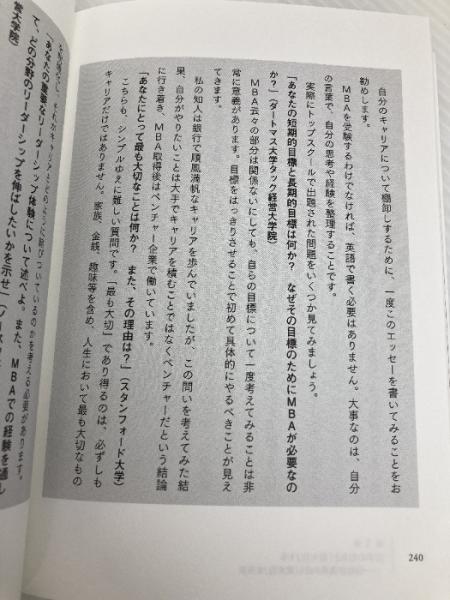 自分のキャリアについて棚卸しするために、一度このエッセーを書いてみることをお
勧めします。
MBAを受験するわけでなければ、英語で書く必要はありません。大事なのは、自分
の言葉で、自分の思考や経験を整理することです。
実際にトップスクールで出題された問題をいくつか見てみましょう。
「あなたの短期的目標と長期的目標は何か? なぜその目標のためにMBAが必要なの
か?」(ダートマス大学タック経営大学院)
MBA云々の部分は関係ないにしても、自らの目標について一度考えてみることは非
常に意義があります。目標をはっきりさせることで初めて具体的にやるべきことが見え
てきます。
私の知人は銀行で順風満帆なキャリアを歩んでいましたが、この問いを考えてみた結
果、自分がやりたいことは大手でキャリアを積むことではなくベンチャーだという結論
に行き着き、MBA取得後はベンチャー企業で働いています。
「あなたにとって最も大切なことは何か? また、その理由は?」(スタンフォード大学)
こちらも、シンプルゆえに難しい質問です。「最も大切」であり得るのは、必ずしも
キャリアだけではありません。家族、金銭、趣味等を含め、人生において最も大切なもの
それがキャリアとどのように結びついているのかを考える必要があります。
「あなたの重要なリーダーシップ体験について述べよ。また、MBAでの経験を通し
て、どの分野のリーダーシップを伸ばしたいかを示せ」
営大学院)
240